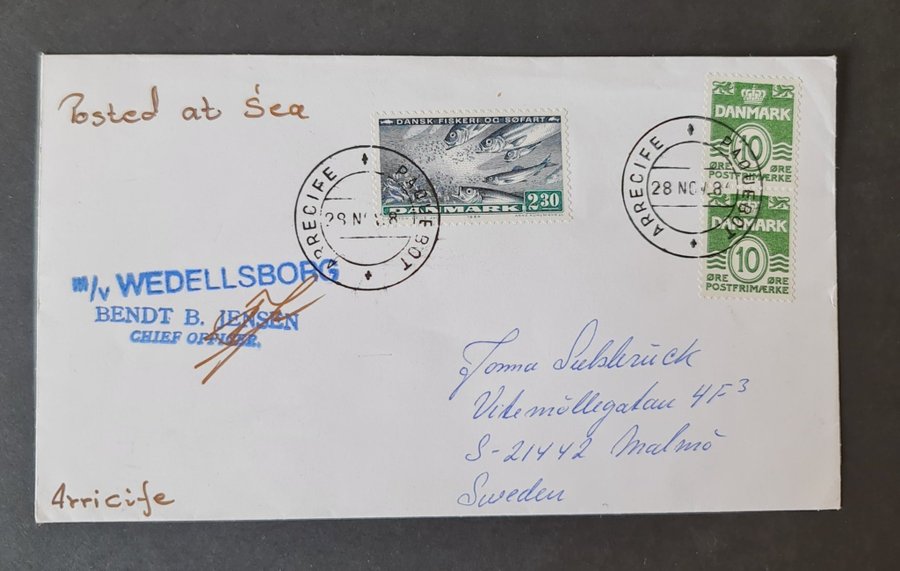 Posted at Sea
DANSK FISKERI OG SØFART
DANMARK 2.30
ARRECIFE PAQUEBOT
28 NOV 8
DANMARK
10
ØRE ØRE
POSTFRIMÆRKE
ARRECIFE PAQUEBOT
28 NOV 8
DANMARK
10
ØRE ØRE
POSTFRIMÆRKE
m/v WEDELLSBORG
BENDT B. JENSEN
CHIEF OFFICER.
Jonna
Vitemöllegatan 4F³
S-21442 Malmö
Sweden
Arricife